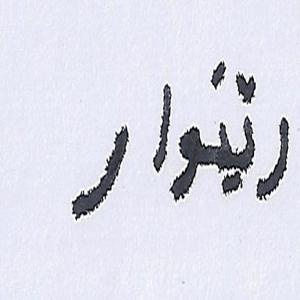 رتينوار